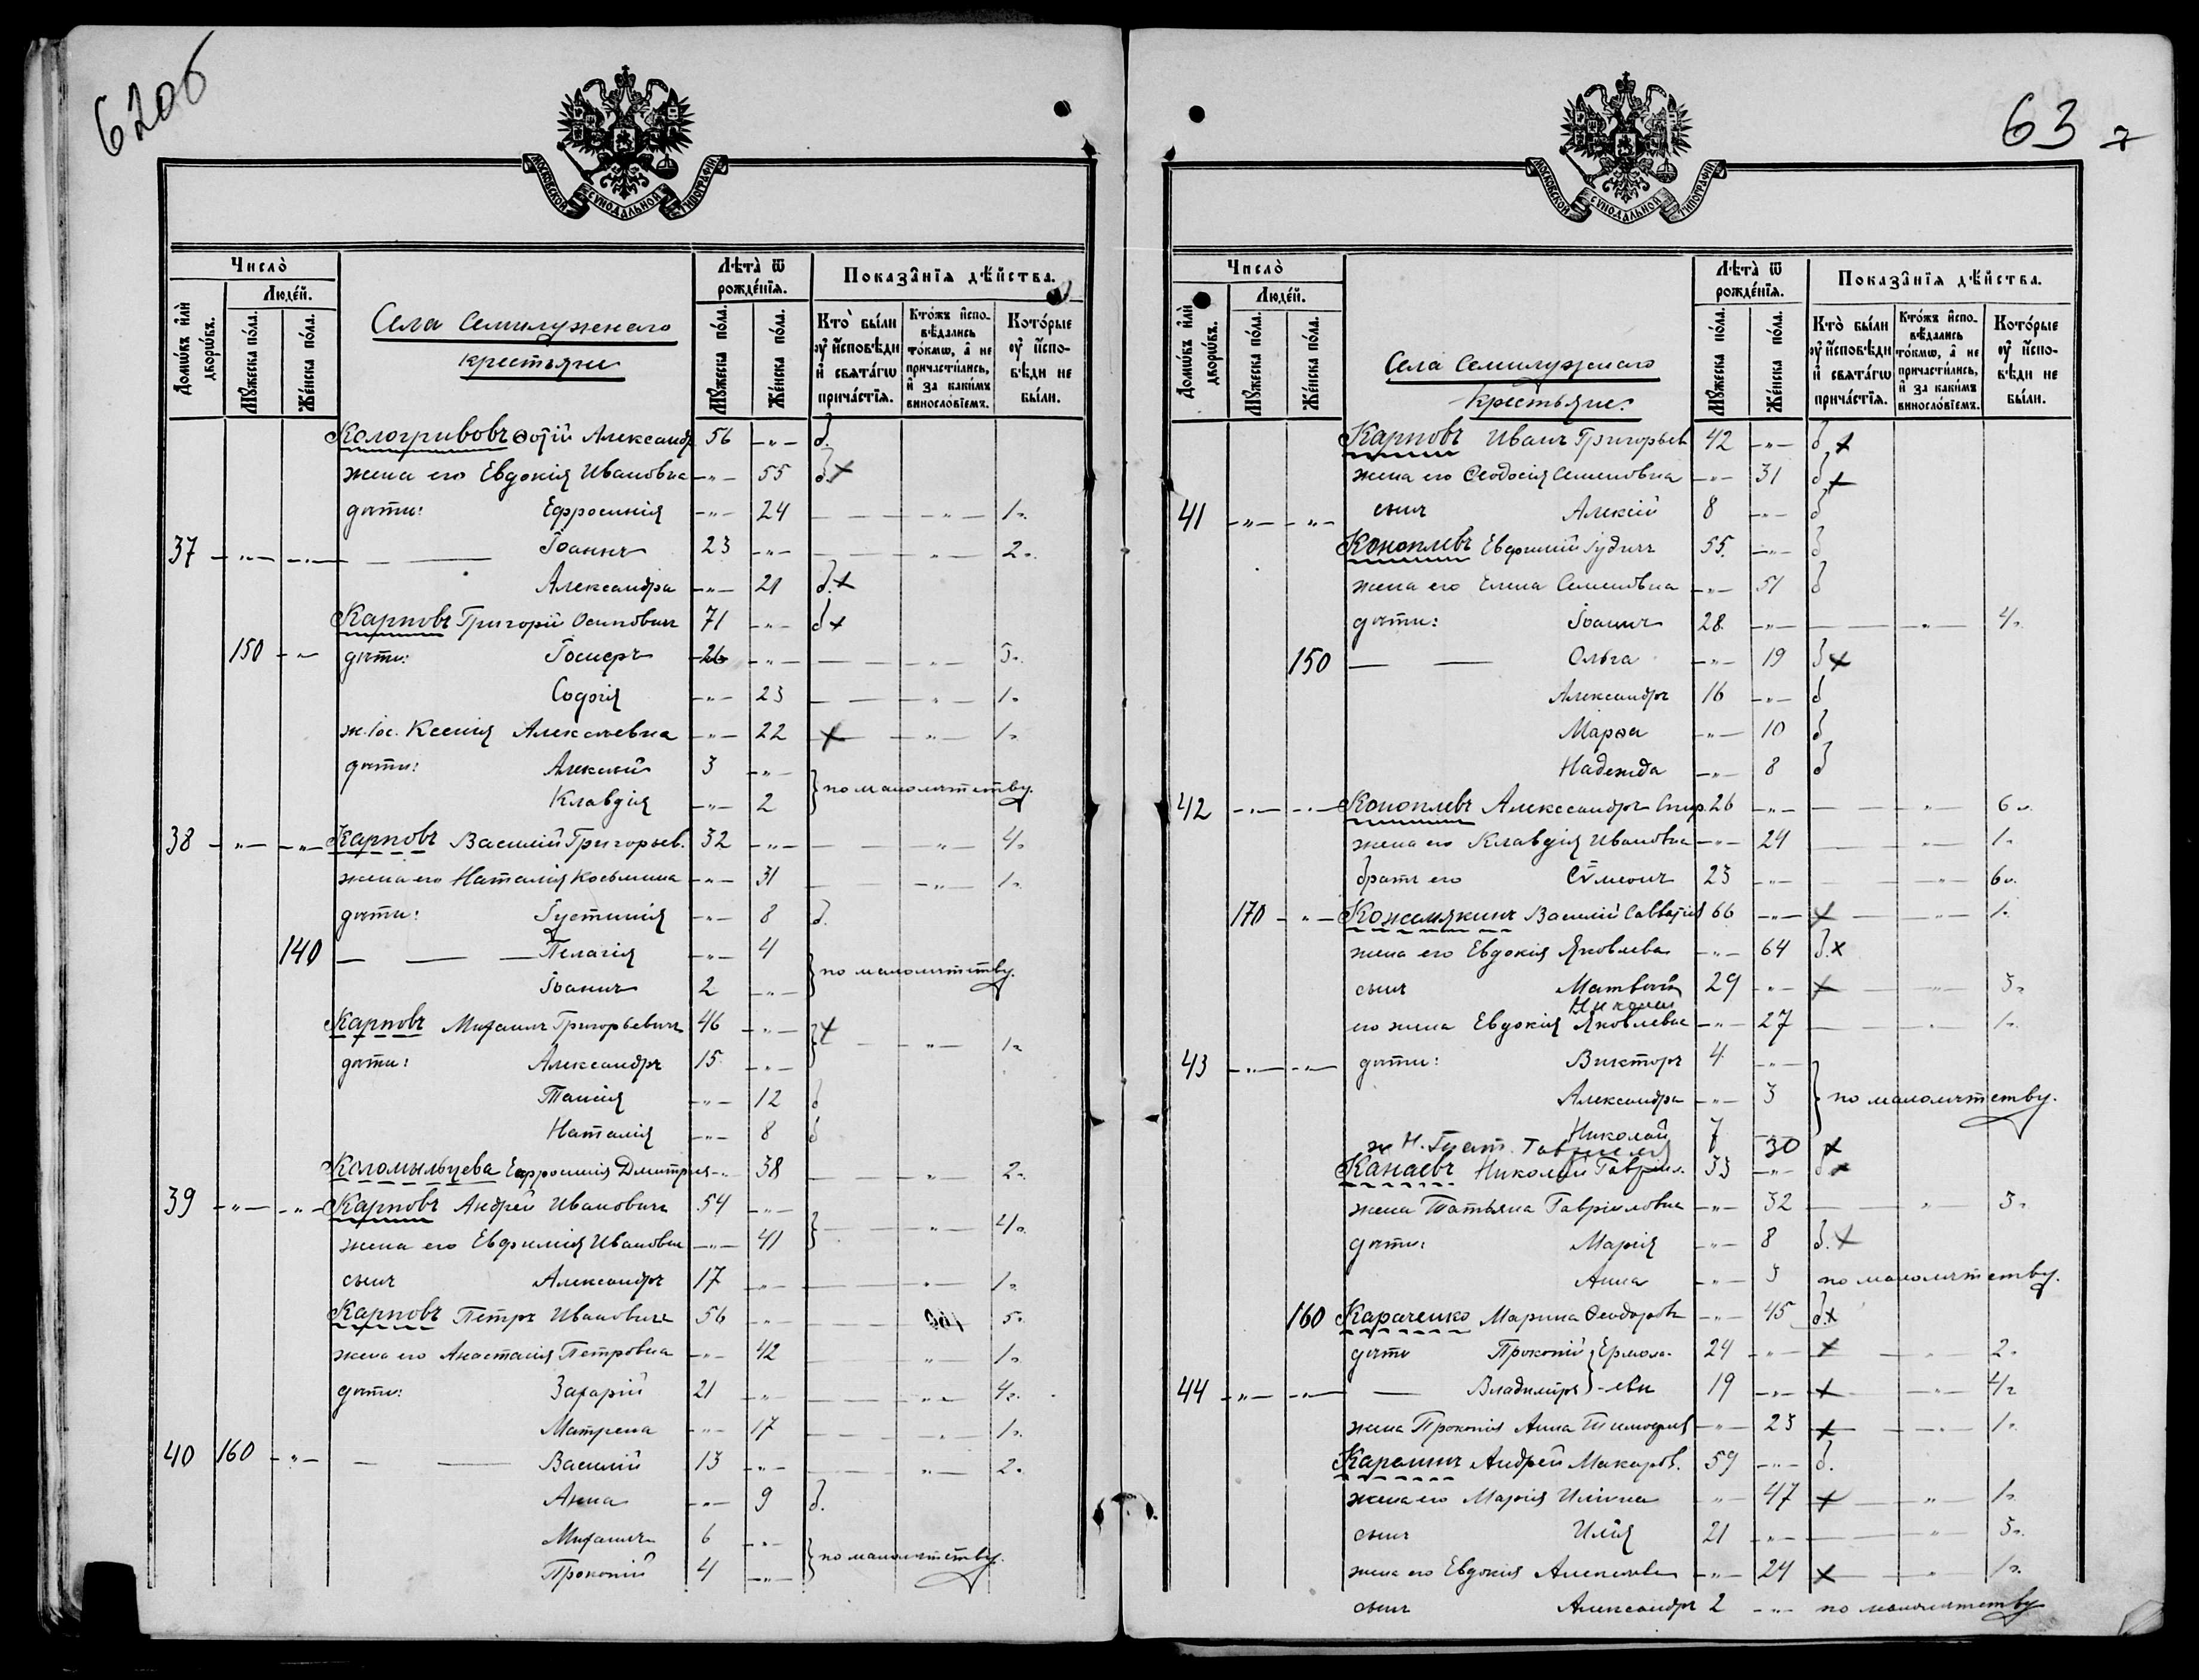 62об
МОСКОВСКОЙ СѴНОДАЛЬНОЙ ТИПОГРАФІИ
Число̀
Людéй.
Домѡ́въ и҆лѝ дворѡ́въ.
Мꙋ́жеска по́ла.
Жéнска по́ла.
Села Семилуженаго
крестьяне
Лѣта̀ ѿ рождéнїѧ.
Мꙋ́жеска по́ла.
Жéнска по́ла.
Показа̑нїѧ дѣ́йства.
Кто̀ бы́ли ᲂу҆ и҆сповѣди и҆ свѧта́гѡ прича́стїѧ.
Кто́жъ и҆спо-вѣдались то́кмѡ, а҆ не причасти́лись, и҆ за каки́мъ винослóвїемъ.
Котóрые ᲂу҆ и҆спо-вѣди не бы́ли.
Кологривовъ Ѳотій Александр 56 -"- б.
жена его Евдокія Ивановна -"- 55 б. х
дѣти: Ефросинія -"- 24 — " — 1".
37 -"- -"- Іоаннъ 23 -"- — " — 2".
Александра -"- 21 б. х
Карповъ Григорій Осиповичъ 71 -"- б х
150 -"- дѣти: Іосифъ 26 -"- — " — 3".
Софія -"- 23 — " — 1".
ж. Іос. Ксенія Алексѣевна -"- 22 х — " — 1".
дѣти: Алексій 3 -"-
Клавдія -"- 2 } по малолѣтству.
38 -"- -"- Карповъ Василій Григорьев. 32 -"- — " — 4".
жена его Наталія Косьмина -"- 31 — " — 1".
дѣти: Іустинія -"- 8 б.
140 — — Пелагія -"- 4
Іоаннъ 2 -"- } по малолѣтству.
Карповъ Михаилъ Григорьевичъ 46 -"- } х — " — 1".
дѣти: Александръ 15 -"-
Таисія -"- 12 б
Наталія -"- 8 б
Коломыльцева Ефросинія Дмитрія -"- 38 — " — 2".
39 -"- -"- Карповъ Андрей Ивановичъ 54 -"-
жена его Евфимія Ивановна -"- 41 } — " — 4".
сынъ Александръ 17 -"- — " — 1".
Карповъ Петръ Ивановичъ 56 -"- — 5".
жена его Анастасія Петровна -"- 42 — " — 1".
дѣти: Захарій 21 -"- — " — 4".
Матрена -"- 17 — " — 1".
40 160 -"- — — Василій 13 -"- — " — 2".
Анна -"- 9 б.
Михаилъ 6 -"-
Прокопій 4 -"- } по малолѣтству.
63
МОСКОВСКОЙ СѴНОДАЛЬНОЙ ТИПОГРАФІИ
Число̀
Людéй.
Домѡ́въ и҆лѝ дворѡ́въ.
Мꙋ́жеска по́ла.
Жéнска по́ла.
Села Семилуженаго
крестьяне.
Лѣта̀ ѿ рождéнїѧ.
Мꙋ́жеска по́ла.
Жéнска по́ла.
Показа̑нїѧ дѣ́йства.
Кто̀ бы́ли ᲂу҆ и҆сповѣди и҆ свѧта́гѡ прича́стїѧ.
Кто́жъ и҆спо-вѣдались то́кмѡ, а҆ не причасти́лись, и҆ за каки́мъ винослóвїемъ.
Котóрые ᲂу҆ и҆спо-вѣди не бы́ли.
Карповъ Иванъ Григорьев 42 -"- б х
жена его Ѳеодосія Семеновна -"- 31 б х
41 -"- -"- сынъ Алексій 8 -"- б
Коноплевъ Евфимій Іудичъ 55. -"- б
жена его Елена Семеновна -"- 51 б
дѣти: Іоаннъ 28 -"- — " — 4".
150 — — Ольга -"- 19 б х
Александръ 16 -"- б
Марѳа -"- 10 б
Надежда -"- 8 б
42 -"- -"- Коноплевъ Алексcандръ Спир. 26 -"- — " — 6".
жена его Клавдія Ивановна -"- 24 — " — 1".
братъ его Сѵмеонъ 23 -"- — " — 6".
170 -"- Кожемякинъ Василій Савватіев 66 -"- х — " — 1".
жена его Евдокія Яковлева -"- 64 б. х
сынъ Матвѣй 29 -"- х — " — 3".
Николай
его жена Евдокія Яковлевна -"- 27 — " — 1".
43 -"- -"- дѣти: Викторъ 4 -"-
Александра -"- 3 } по малолѣтству.
Николай
ж. Н. Гавриил 30 х
Канаевъ Николай Гавріил. 33 -"- б х
жена Татьяна Гавріиловна -"- 32 — " — 3".
дѣти: Марія -"- 8 б. х
Анна -"- 3 по малолѣтству.
160 Караченко Марина Ѳеодоров -"- 45 б. х
дѣти Прокопій } Ермола- 24 -"- х — " — 2".
44 -"- -"- — Владиміръ } -еви 19 -"- х — " — 4".
жена Прокопія Анна Тимофея -"- 23 х — " — 1".
Карелинъ Андрей Макаров. 59 -"- б.
жена его Марія Ильина " 47 х — " — 1".
сынъ Илія 21 -"- — " — 3".
жена его Евдокія Алексѣева -"- 24 х — " — 1".
сынъ Александръ 2 -"- по малолѣтству